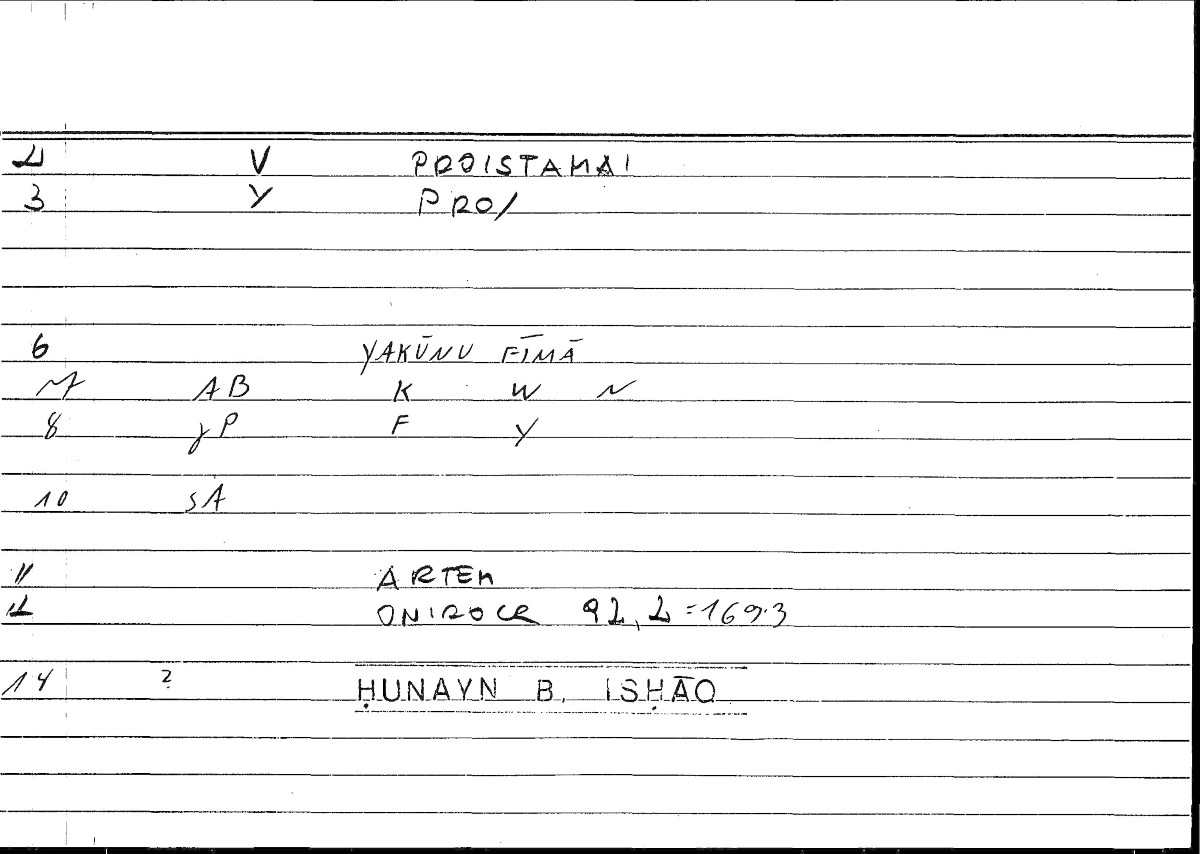 2 V PROISTAMAI
3 Y PRO/
6 YAKŪNU FĪMĀ
7 AB K W N
8 γP F Y
10 SA
11 ARTEM
12 ONIROCR 92, 2 = 169.3
14 ? ḤUNAYN B. ISḤĀQ